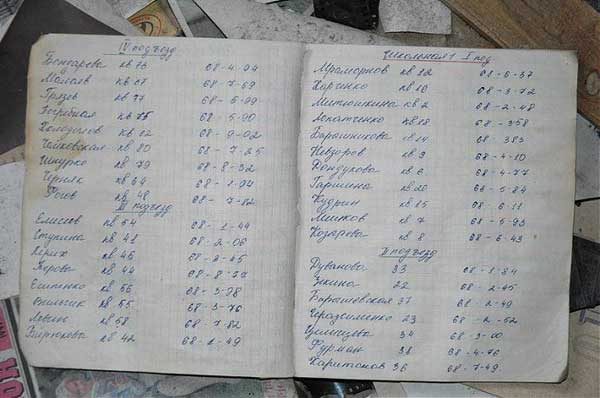 IV подъезд
Бондарева кв 73 68-4-94
Мамаев кв 67 68-7-69
Грязев кв 77 68-5-99
Погребная кв 75 68-5-90
Холодолов кв 62 68-9-02
Чайковская кв 80 68-7-25
Шкурко кв 79 68-8-32
Черняк кв 64 68-1-94
Рогов кв 48 68-7-82
III подъезд
Елисеев кв 54 68-1-44
Ступина кв 41 68-2-06
кв 46 68-2-45
кв 44 68-8-77
кв 56 68-3-78
кв 55 68-3-76
кв 58 68-7-82
Бирюкова кв 42 68-1-49
Школьная 1 I под
Мраморнов кв 12 68-6-37
Харченко кв 10 68-3-72
Митюшкина кв 2 68-2-48
Лопатченко кв 18 68-358
Барашникова кв 14 68 383
Невзоров кв 3 68-4-10
Кондукова кв 6 68-4-77
Гаршина кв 20 68-5-84
Кудрин кв 15 68-6-11
кв 7 68-5-93
Козарева кв 8 68-6-43
II подъезд
Дуванова 33 68-1-84
Зекина 22 68-2-45
Борашевская 37 68-2-49
Герасименко 23 68-2-52
34 68-3-00
Фурман 38 68-4-76
Харитонов 36 68-7-49